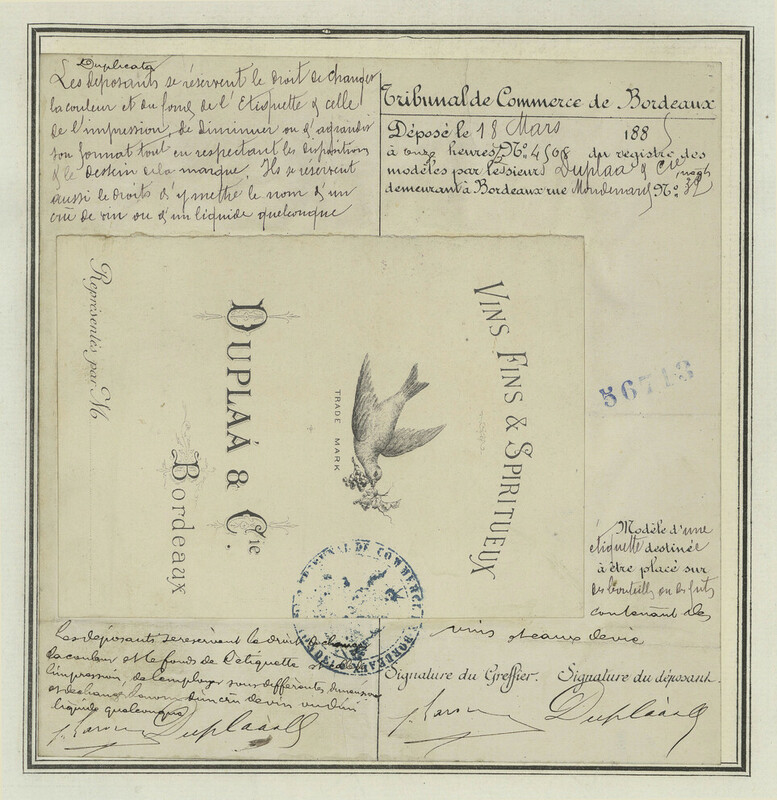 Duplicata
Les déposants se réservent le droit de changer
la couleur et du fond de l'Etiquette & celle
de l'impression, de diminuer ou d'agrandir
son format tout en respectant les dispositions
& le dessin de la marque. Ils se réservent
aussi le droits d'y mettre le nom d'un
crû de vin ou d'un liquide quelconque
Tribunal de Commerce de Bordeaux
Déposé le 18 Mars 1885
à onze heures, No. 4508 du registre des
modèles par le Sieurs Duplaà & Cie négts
demeurant à Bordeaux rue Mondenard No. 32
VINS FINS & SPIRITUEUX
TRADE MARK
DUPLAÁ & Cie.
Bordeaux
Représentés par M
56713
Modèle d'une
étiquette destinée
à être placé sur
des bouteilles ou des futs
contenant des
vins et eaux de vie
TRIBUNAL DE COMMERCE BORDEAUX
Les déposants se reservent le droit de changer
la couleur et le fonds de l'étiquette et de
l'impression, de l'employer sous différentes dimensions
et de changer le nom d'un crû de vin ou d'un
liquide quelconque
Signature du Greffier. Signature du déposant.
Duplaà &
Duplaà &